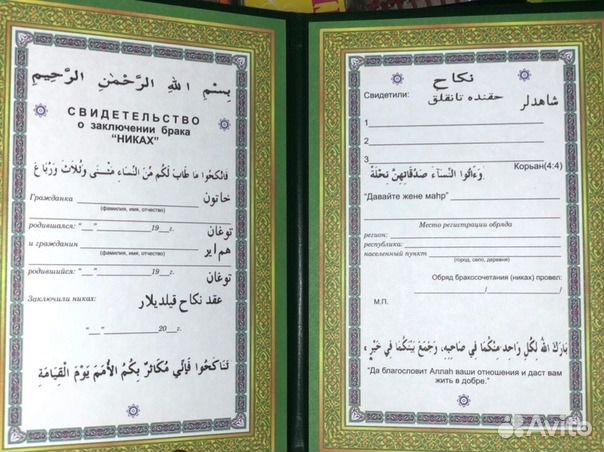 بِسْمِ اللهِ الرَّحْمٰنِ الرَّحِيمِ
СВИДЕТЕЛЬСТВО
о заключении брака
"НИКАХ"
فَانْكِحُوا مَا طَابَ لَكُمْ مِّنَ النِّسَاءِ مَثْنَى وَثُلَاثَ وَرُبَاعَ
Гражданка خاتون
(фамилия, имя, отчество)
родившался: "__" ________ 19__г. توغان
и гражданин هم اير
(фамилия, имя, отчество)
родившийся: "__" ________ 19__г. توغان
Заключили никах: عقد نكاح قيلديلار
"__" ________ 20__г.
تَنَاكَحُوا فَإِنِّي مُكَاثِرٌ بِكُمُ الْأُمَمَ يَوْمَ الْقِيَامَةِ
نكاح
Свидетели: حقنده تانقلق شاهدلر
1
2
3
Корьан(4:4)
وَءَاتُوا النِّسَآءَ صَدُقَاتِهِنَّ نِحْلَةً
"Давайте жене маhр"
Место регистрации обряда
регион:
республика:
населенный пункт
(город, село, деревня)
Обряд бракосочетания (никах) провел:
/ /
М.П.
بَارَكَ اللهُ لِكُلِّ وَاحِدٍ مِنْكُمَا فِي صَاحِبِهِ، وَجَمَعَ بَيْنَكُمَا فِي خَيْرٍ
"Да благословит Аллах ваши отношения и даст вам
жить в добре."
Avito